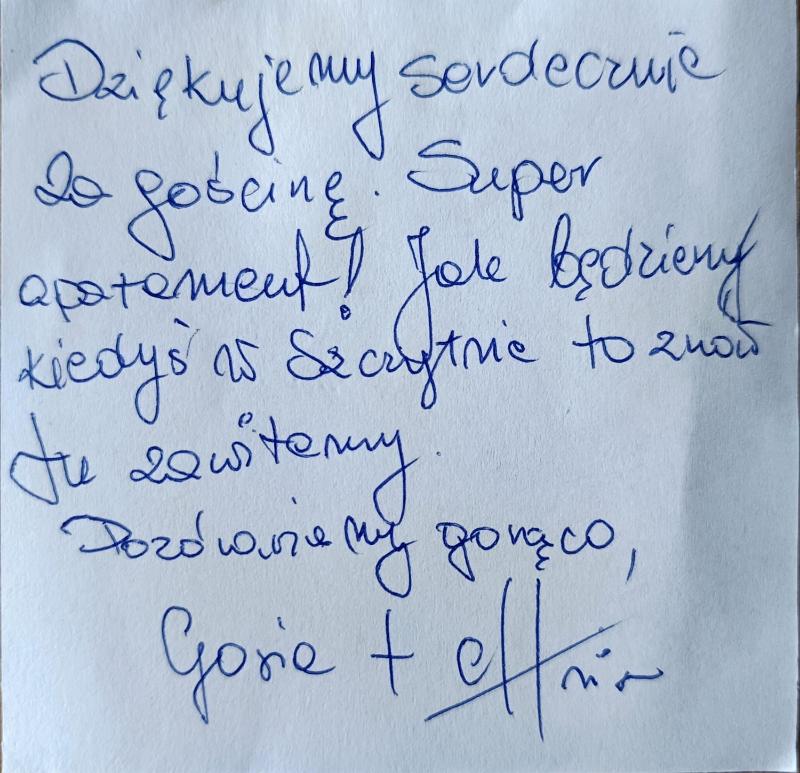 Dziękujemy serdecznie
za gościnę. Super
apatament! Jak będziemy
kiedyś w Szczytnie to znów
tu zawitamy.
Pozdrawiamy gorąco,
Gosia +